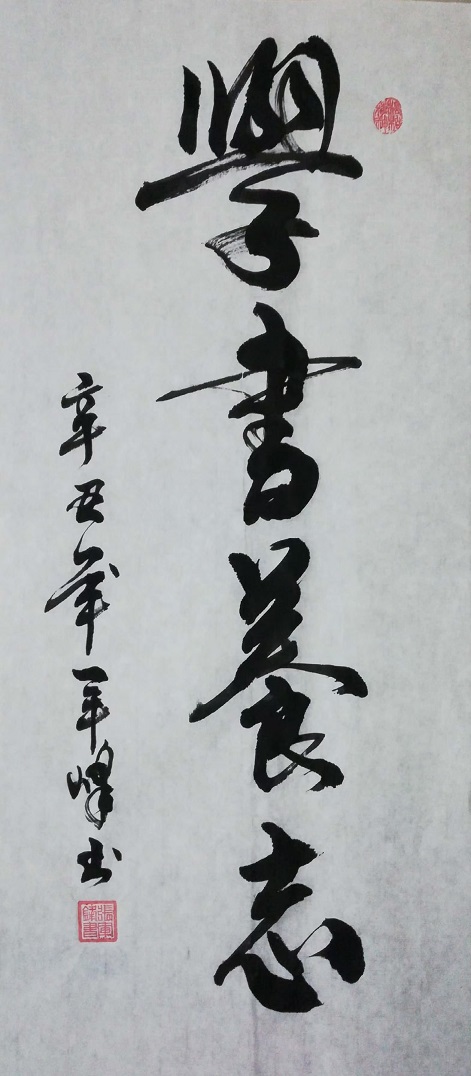 學書養志
辛丑年军峰书